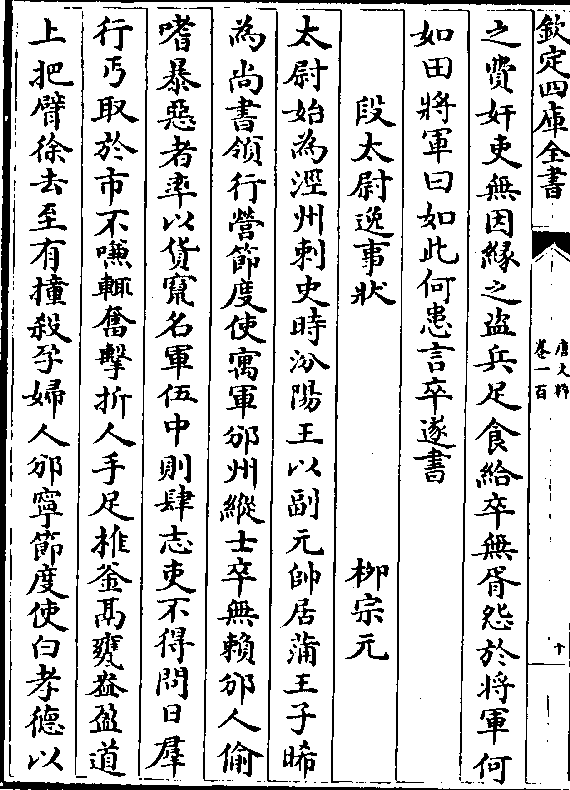 欽定四庫全書
唐文粹
卷一百
十
之費奸吏無因緣之盜兵足食給卒無胥怨於將軍何
如田將軍曰如此何患言卒遂書
段太尉逸事狀 柳宗元
太尉始為涇州刺史時汾陽王以副元帥居蒲王子晞
為尚書領行營節度使寓軍邠州縱士卒無賴邠人偷
嗜暴惡者率以貨竄名軍伍中則肆志吏不得問日羣
行丐取於市不嗛輒奮擊折人手足椎釜鬲甕盎盈道
上把臂徐去至有撞殺孕婦人邠寧節度使白孝德以